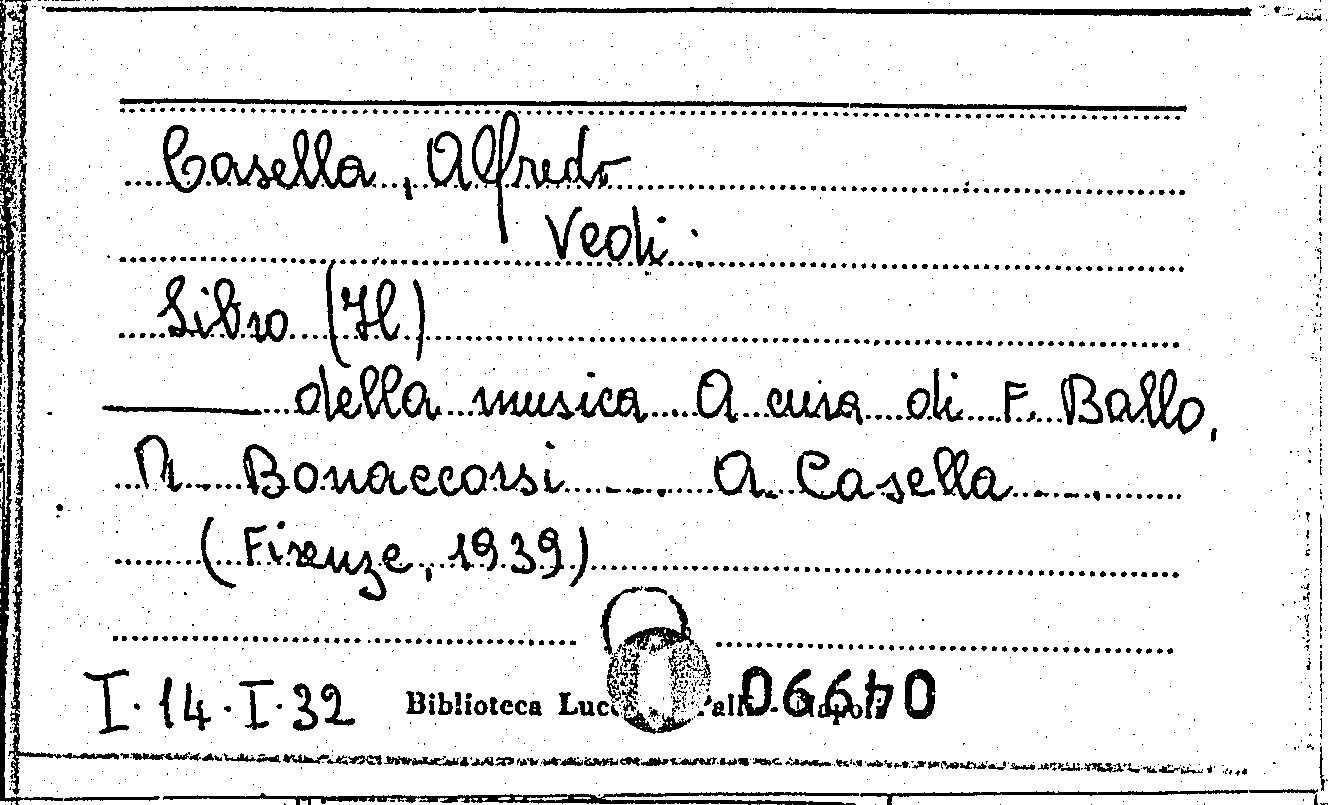 Casella, Alfredo
Vedi:
Libro (Il)
della musica A cura di F. Ballo,
Bonaccorsi ... A. Casella ...
(Firenze, 1939)
I.14.I.32 Biblioteca